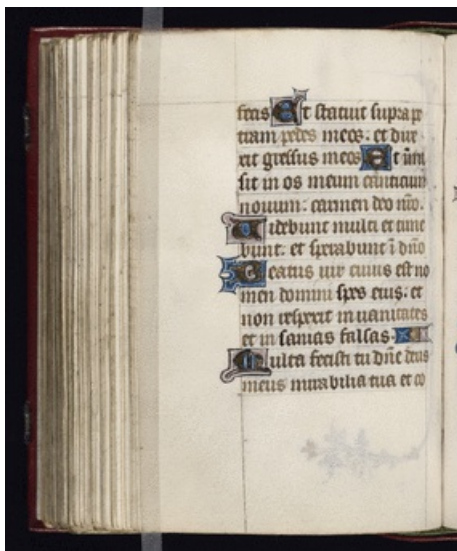 fecis Et statuit supra pe
tram pedes meos: et dire
xit gressus meos Et īmi
sit in os meum canticum
nouum: carmen deo nr̄o.
Uidebunt multi et time
bunt: et sperabunt ī dn̄o
Beatus uir cuius est no
men domini spes eius: et
non respexit in uanitates
et in sanias falsas.
Multa fecisti tu dn̄e deus
meus mirabilia tua et co